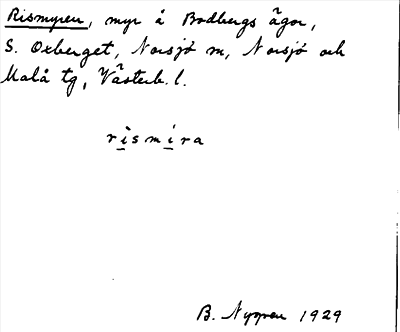 Rismyren, myr å Bodbergs ägor,
S. Oxberget, Norsjö sn, Norsjö och
Malå tg, Västerb. l.
rismira
B. Nygren 1929